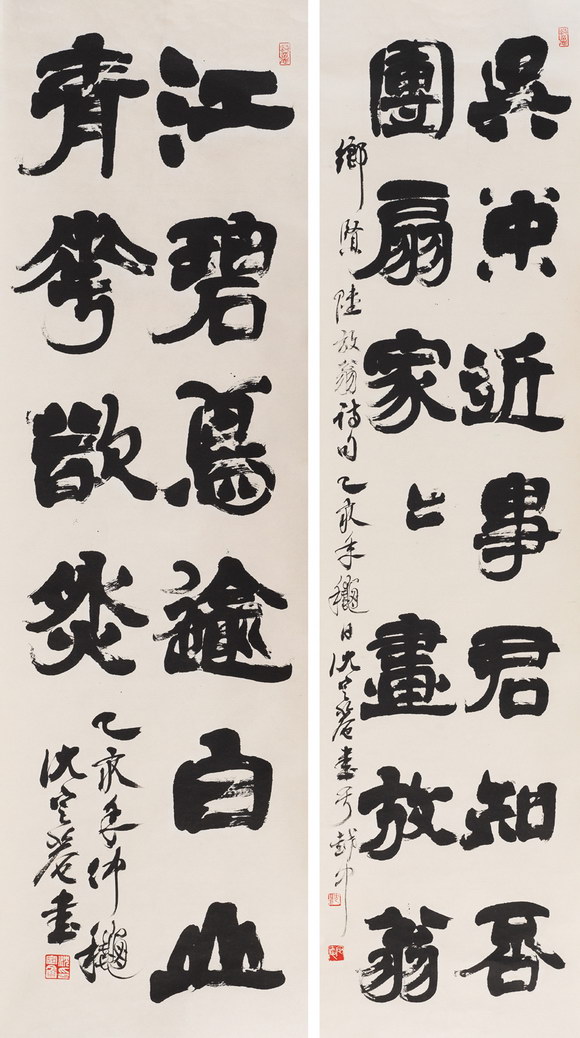 吳中近事君知否
團扇家〻畫放翁
鄉賢陸放翁詩句乙亥年穐日沈定菴書于越中
江碧鳥逾白山
青花欲然
乙亥年仲穐
沈定菴書